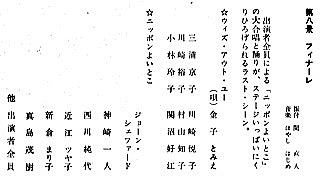 第八景 フィナーレ
振付 関 直人
音楽 はやし はじめ
出演者全員による「ニッポンよいとこ」
の大合唱と踊りが、ステージいっぱいにく
りひろげられるラスト・シーン。
☆ウィズ・アウト・ユー
(唄) 金子 とみえ
三清京子 関崎悦子
川崎裕子 村山知子
小林玲子 関沼好江
☆ニッポンよいとこ
ジョーン・シェファード
神崎一人
近江ツヤ子
西川純代
新倉まり子
真島茂樹
他 出演者全員